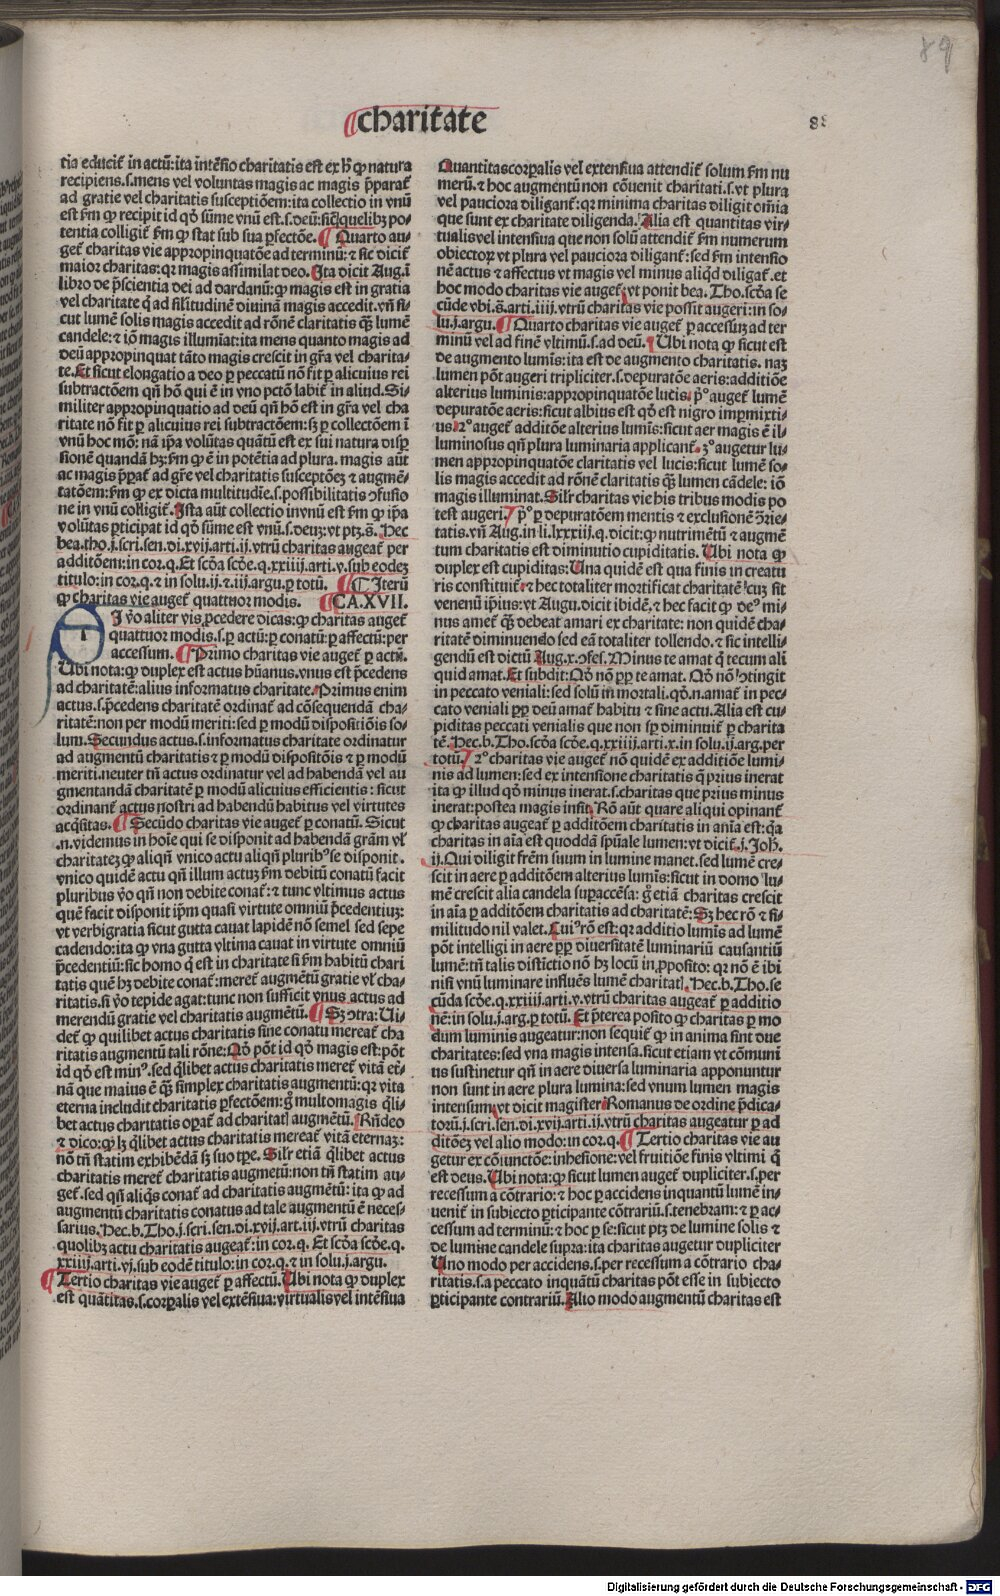 89
charitate
88
tia educit̃ in actũ: ita intẽsio charitatis est ex h̃ ꝙ natura
recipiens.s.mens vel voluntas magis ac magis p̃parat̃
ad gratie vel charitatis susceptiõem: ita collectio in vnũ
est ẜm ꝙ recipit id qð sũme vnũ est.s.deũ: sic̃ quelibꝫ po-
tentia colligit̃ ẜm ꝙ stat sub sua ꝑfectõe. ¶ Quarto au-
get̃ charitas vie appropinquatõe ad terminũ: ⁊ sic dicit̃
maior charitas: qꝛ magis assimilat deo. Ita dicit Aug.ĩ
libro de p̃scientia dei ad dardanũ: ꝙ magis est in gratia
vel charitate q̃ ad silitudinẽ diuinã magis accedit. vñ si-
cut lumẽ solis magis accedit ad rõnẽ claritatis q̃ꝫ lumẽ
candele: ⁊ iõ magis illumĩat: ita mens quanto magis ad
deũ appropinquat tãto magis crescit in gr̃a vel charita-
te. Et sicut elongatio a deo ꝑ peccatũ nõ fit ꝑ alicuius rei
subtractõem qñ hõ qui ẽ in vno pctõ labit̃ in aliud. Si-
militer appropinquatio ad deũ qñ hõ est in gr̃a vel cha
ritate nõ fit ꝑ alicuius rei subtractõem: sꝫ ꝑ collectõem ĩ
vnũ hoc mõ: nã ip̃a volũtas quãtũ est ex sui natura disꝑ
sionẽ quandã hꝫ: ẜm ꝙ ẽ in potẽtia ad plura. magis aũt
ac magis p̃parat̃ ad gr̃e vel charitatis susceptõeꝫ ⁊ augmẽ-
tatõem: ẜm ꝙ ex dicta multitudĩe.s.possibilitatis ꝯfusio
ne in vnũ colligit̃. Ista aũt collectio in vnũ est ẜm ꝙ ip̃a
volũtas ꝑticipat id qð sũme est vnũ.s.deuꝫ: vt ptꝫ.s̃. Hec
bea.tho.j.scri.sen.di.xvij.arti.ij.vtrũ charitas augeat̃ per
additõem: in cor.q. Et scđa scđe.q.xxiiij.arti.v.sub eodeꝫ
titulo: in cor.q. ⁊ in solu.ij. ⁊ .iij.argu.ꝑ totũ. ¶ ¶ Iterũ
ꝙ charitas vie auget̃ quattuor modis. ¶ CA.XVII.
I ṽo aliter vis ꝓcedere dicas: ꝙ charitas auget̃
quattuor modis.s.ꝑ actũ: ꝑ conatũ: ꝑ affectũ: per
accessum. ¶ Primo charitas vie auget̃ ꝑ actũ.
Ubi nota: ꝙ duplex est actus hũanus. vnus est p̃cedens
ad charitatẽ: alius informatus charitate. Primus enim
actus.s.p̃cedens charitatẽ ordinat̃ ad cõsequendã cha-
ritatẽ: non per modũ meriti: sed ꝑ modũ dispositiõis so-
lum. Secundus actus.s.informatus charitate ordinatur
ad augmentũ charitatis ⁊ ꝑ modũ dispositõis ⁊ ꝑ modũ
meriti. neuter tñ actus ordinatur vel ad habendã vel au
gmentandã charitatẽ ꝑ modũ alicuius efficientis: sicut
ordinant̃ actus nostri ad habendũ habitus vel virtutes
acq̃sitas. ¶ Secũdo charitas vie auget̃ ꝑ conatũ. Sicut
.n.videmus in hoĩe qui se disponit ad habendã gr̃am vl̃
charitateꝫ ꝙ aliqñ vnico actu aliqñ pluribꝰ se disponit.
vnico quidẽ actu qñ illum actuꝫ ẜm debitũ conatũ facit
pluribus ṽo qñ non debite conat̃: ⁊ tunc vltimus actus
quẽ facit disponit ip̃m quasi virtute omniũ p̃cedentiuꝫ:
vt verbigratia sicut gutta cauat lapidẽ nõ semel sed sepe
cadendo: ita ꝙ vna gutta vltima cauat in virtute omniũ
p̃cedentiũ: sic homo q̃ est in charitate si ẜm habitũ chari
tatis quẽ hꝫ debite conat̃: meret̃ augmẽtũ gratie vl̃ cha-
ritatis. si ṽo tepide agat: tunc non sufficit vnus actus ad
merendũ gratie vel charitatis augmẽtũ. ¶ Sꝫ ꝯtra: Ui-
det̃ ꝙ quilibet actus charitatis sine conatu mereat̃ cha
ritatis augmentũ tali rõne: Qð põt id qð magis est: põt
id qð est minꝰ. sed q̃libet actus charitatis meret̃ vitã et̃-
nã que maius ẽ q̃ꝫ simplex charitatis augmentũ: qꝛ vita
eterna includit charitatis ꝑfectõem: g̊ multomagis q̃li-
bet actus charitatis oꝑat̃ ad charitat̃ augmẽtũ. Rñdeo
⁊ dico: ꝙ lꝫ q̃libet actus charitatis mereat̃ vitã eternaꝫ:
nõ tñ statim exhibẽdã sꝫ suo tꝑe. Silr etiã q̃libet actus
charitatis meret̃ charitatis augmẽtũ: non tñ statim au-
get̃. sed qñ aliq̃s conat̃ ad charitatis augmẽtũ: ita ꝙ ad
augmentũ charitatis conatus ad tale augmentũ ẽ neces-
sarius. Hec.b.Tho.j.scri.sen.di.xvij.art.iij.vtrũ charitas
quolibꝫ actu charitatis augeat̃: in cor.q. Et scđa scđe.q.
xxiiij.arti.vj.sub eodẽ titulo: in cor.q. ⁊ in solu.j.argu.
¶ Tertio charitas vie auget̃ ꝑ affectũ. Ubi nota ꝙ duplex
est quãtitas.s.corꝑalis vel extẽsiua: virtualis vel intẽsiua
Quantitas corꝑalis vel extensiua attendit̃ solum ẜm nu
merũ. ⁊ hoc augmentũ non cõuenit charitati.s.vt plura
vel pauciora diligant̃: qꝛ minima charitas diligit om̃ia
que sunt ex charitate diligenda. Alia est quantitas vir-
tualis vel intensiua que non solũ attendit̃ ẜm numerum
obiectoꝝ vt plura vel pauciora diligant̃: sed ẜm intensio
nẽ actus ⁊ affectus vt magis vel minus aliqð diligat̃. et
hoc modo charitas vie auget̃: vt ponit bea.Tho.scđa se
cũde vbi.s̃.arti.iiij.vtrũ charitas vie possit augeri: in so-
lu.j.argu. ¶ Quarto charitas vie auget̃ ꝑ accessuꝫ ad ter
minũ vel ad finẽ vltimũ.s.ad deũ. ¶ Ubi nota ꝙ sicut est
de augmento lumĩs: ita est de augmento charitatis. naꝫ
lumen põt augeri tripliciter.s.depuratõe aeris: additiõe
alterius luminis: appropinquatõe lucis. pꝰ auget̃ lumẽ
depuratõe aeris: sicut albius est qð est nigro imꝑmixti-
us. 2ꝰ auget̃ additõe alterius lumĩs: sicut aer magis ẽ il-
luminosus qñ plura luminaria applicant̃. 3ꝰ augetur lu-
men appropinquatõe claritatis vel lucis: sicut lumẽ so-
lis magis accedit ad rõnẽ claritatis q̃ꝫ lumẽ cãdele: iõ
magis illuminat. Silr charitas vie his tribus modis po
test augeri. pꝰ ꝑ depuratõem mentis ⁊ exclusionẽ ꝯ̃rie-
tatis. vñ Aug.in li.lxxxiij.q.dicit: ꝙ nutrimẽtũ ⁊ augmẽ
tum charitatis est diminutio cupiditatis. Ubi nota ꝙ
duplex est cupiditas: Una quidẽ est qua finis in creatu
ris constituit̃: ⁊ hec totaliter mortificat charitatẽ: cuꝫ sit
venenũ ip̃ius: vt Augu.dicit ibidẽ. ⁊ hec facit ꝙ deꝰ mi-
nus amet̃ q̃ꝫ debeat amari ex charitate: non quidẽ cha-
ritatẽ diminuendo sed eã totaliter tollendo. ⁊ sic intelli-
gendũ est dictũ Aug.x.ꝯfes. Minus te amat q̃ tecum ali
quid amat. Et subdit: Qð nõ ꝓꝑ te amat. Qð nõ ꝯtingit
in peccato veniali: sed solũ in mortali. qð.n.amat̃ in pec-
cato veniali ꝓꝑ deũ amat̃ habitu ⁊ si ne actu. Alia est cu-
piditas peccati venialis que non sꝑ diminuit̃ ꝑ charita
tẽ. Hec.b.Tho.scđa scđe.q.xxiiij.arti.x.in solu.ij.arg.per
totũ. 2ꝰ charitas vie auget̃ nõ quidẽ ex additiõe lumi-
nis ad lumen: sed ex intensione charitatis q̃ prius inerat
ita ꝙ illud qð minus inerat.s.charitas que prius minus
inerat: postea magis insit. Rõ aũt quare aliqui opinant̃
ꝙ charitas augeat̃ ꝑ additõem charitatis in aĩa est: q̃a
charitas in aĩa est quoddã sp̃uale lumen: vt dicit̃.j.Joh.
ij. Qui diligit fr̃em suum in lumine manet. sed lumẽ cre-
scit in aere ꝑ additõem alterius lumĩs: sicut in domo lu-
mẽ crescit alia candela suꝑaccẽsa: g̊ etiã charitas crescit
in aĩa ꝑ additõem charitatis ad charitatẽ: Sꝫ hec rõ ⁊ si-
militudo nil valet. Cuiꝰ rõ est: qꝛ additio lumĩs ad lumẽ
põt intelligi in aere ꝓꝑ diuersitatẽ luminariũ causantiũ
lumẽ: tñ talis distĩctio nõ hꝫ locũ in ꝓposito: qꝛ nõ ẽ ibi
nisi vnũ luminare influẽs lumẽ charitat̃. Hec.b.Tho.se
cũda scđe.q.xxiiij.arti.v.vtrũ charitas augeat̃ ꝑ additio
nẽ: in solu.j.arg.ꝑ totũ. Et p̃terea posito ꝙ charitas ꝑ mo
dum luminis augeatur: non sequit̃ ꝙ in anima sint due
charitates: sed vna magis intensa. sicut etiam vt cõmuni
us sustinetur qñ in aere diuersa luminaria apponuntur
non sunt in aere plura lumina: sed vnum lumen magis
intensum: vt dicit magister Romanus de ordine p̃dica-
torũ.j.scri.sen.di.xvij.arti.ij.vtrũ charitas augeatur ꝑ ad
ditõeꝫ vel alio modo: in cor.q. ¶ Tertio charitas vie au
getur ex cõiunctõe: inhesione: vel fruitiõe finis vltimi q̃
est deus. Ubi nota: ꝙ sicut lumen auget̃ dupliciter.s.per
recessum a cõtrario: ⁊ hoc ꝑ accidens inquantũ lumẽ in-
uenit̃ in subiecto ꝑticipante cõtrariũ.s.tenebram: ⁊ ꝑ ac-
cessum ad terminũ: ⁊ hoc ꝑ se: sicut ptꝫ de lumine solis ⁊
de lumine candele supra: ita charitas augetur dupliciter
Uno modo per accidens.s.per recessum a cõtrario cha-
ritatis.s.a peccato inquãtũ charitas põt esse in subiecto
ꝑticipante contrariũ. Alio modo augmentũ charitas est
Digitalisierung gefördert durch die Deutsche Forschungsgemeinschaft - DFG